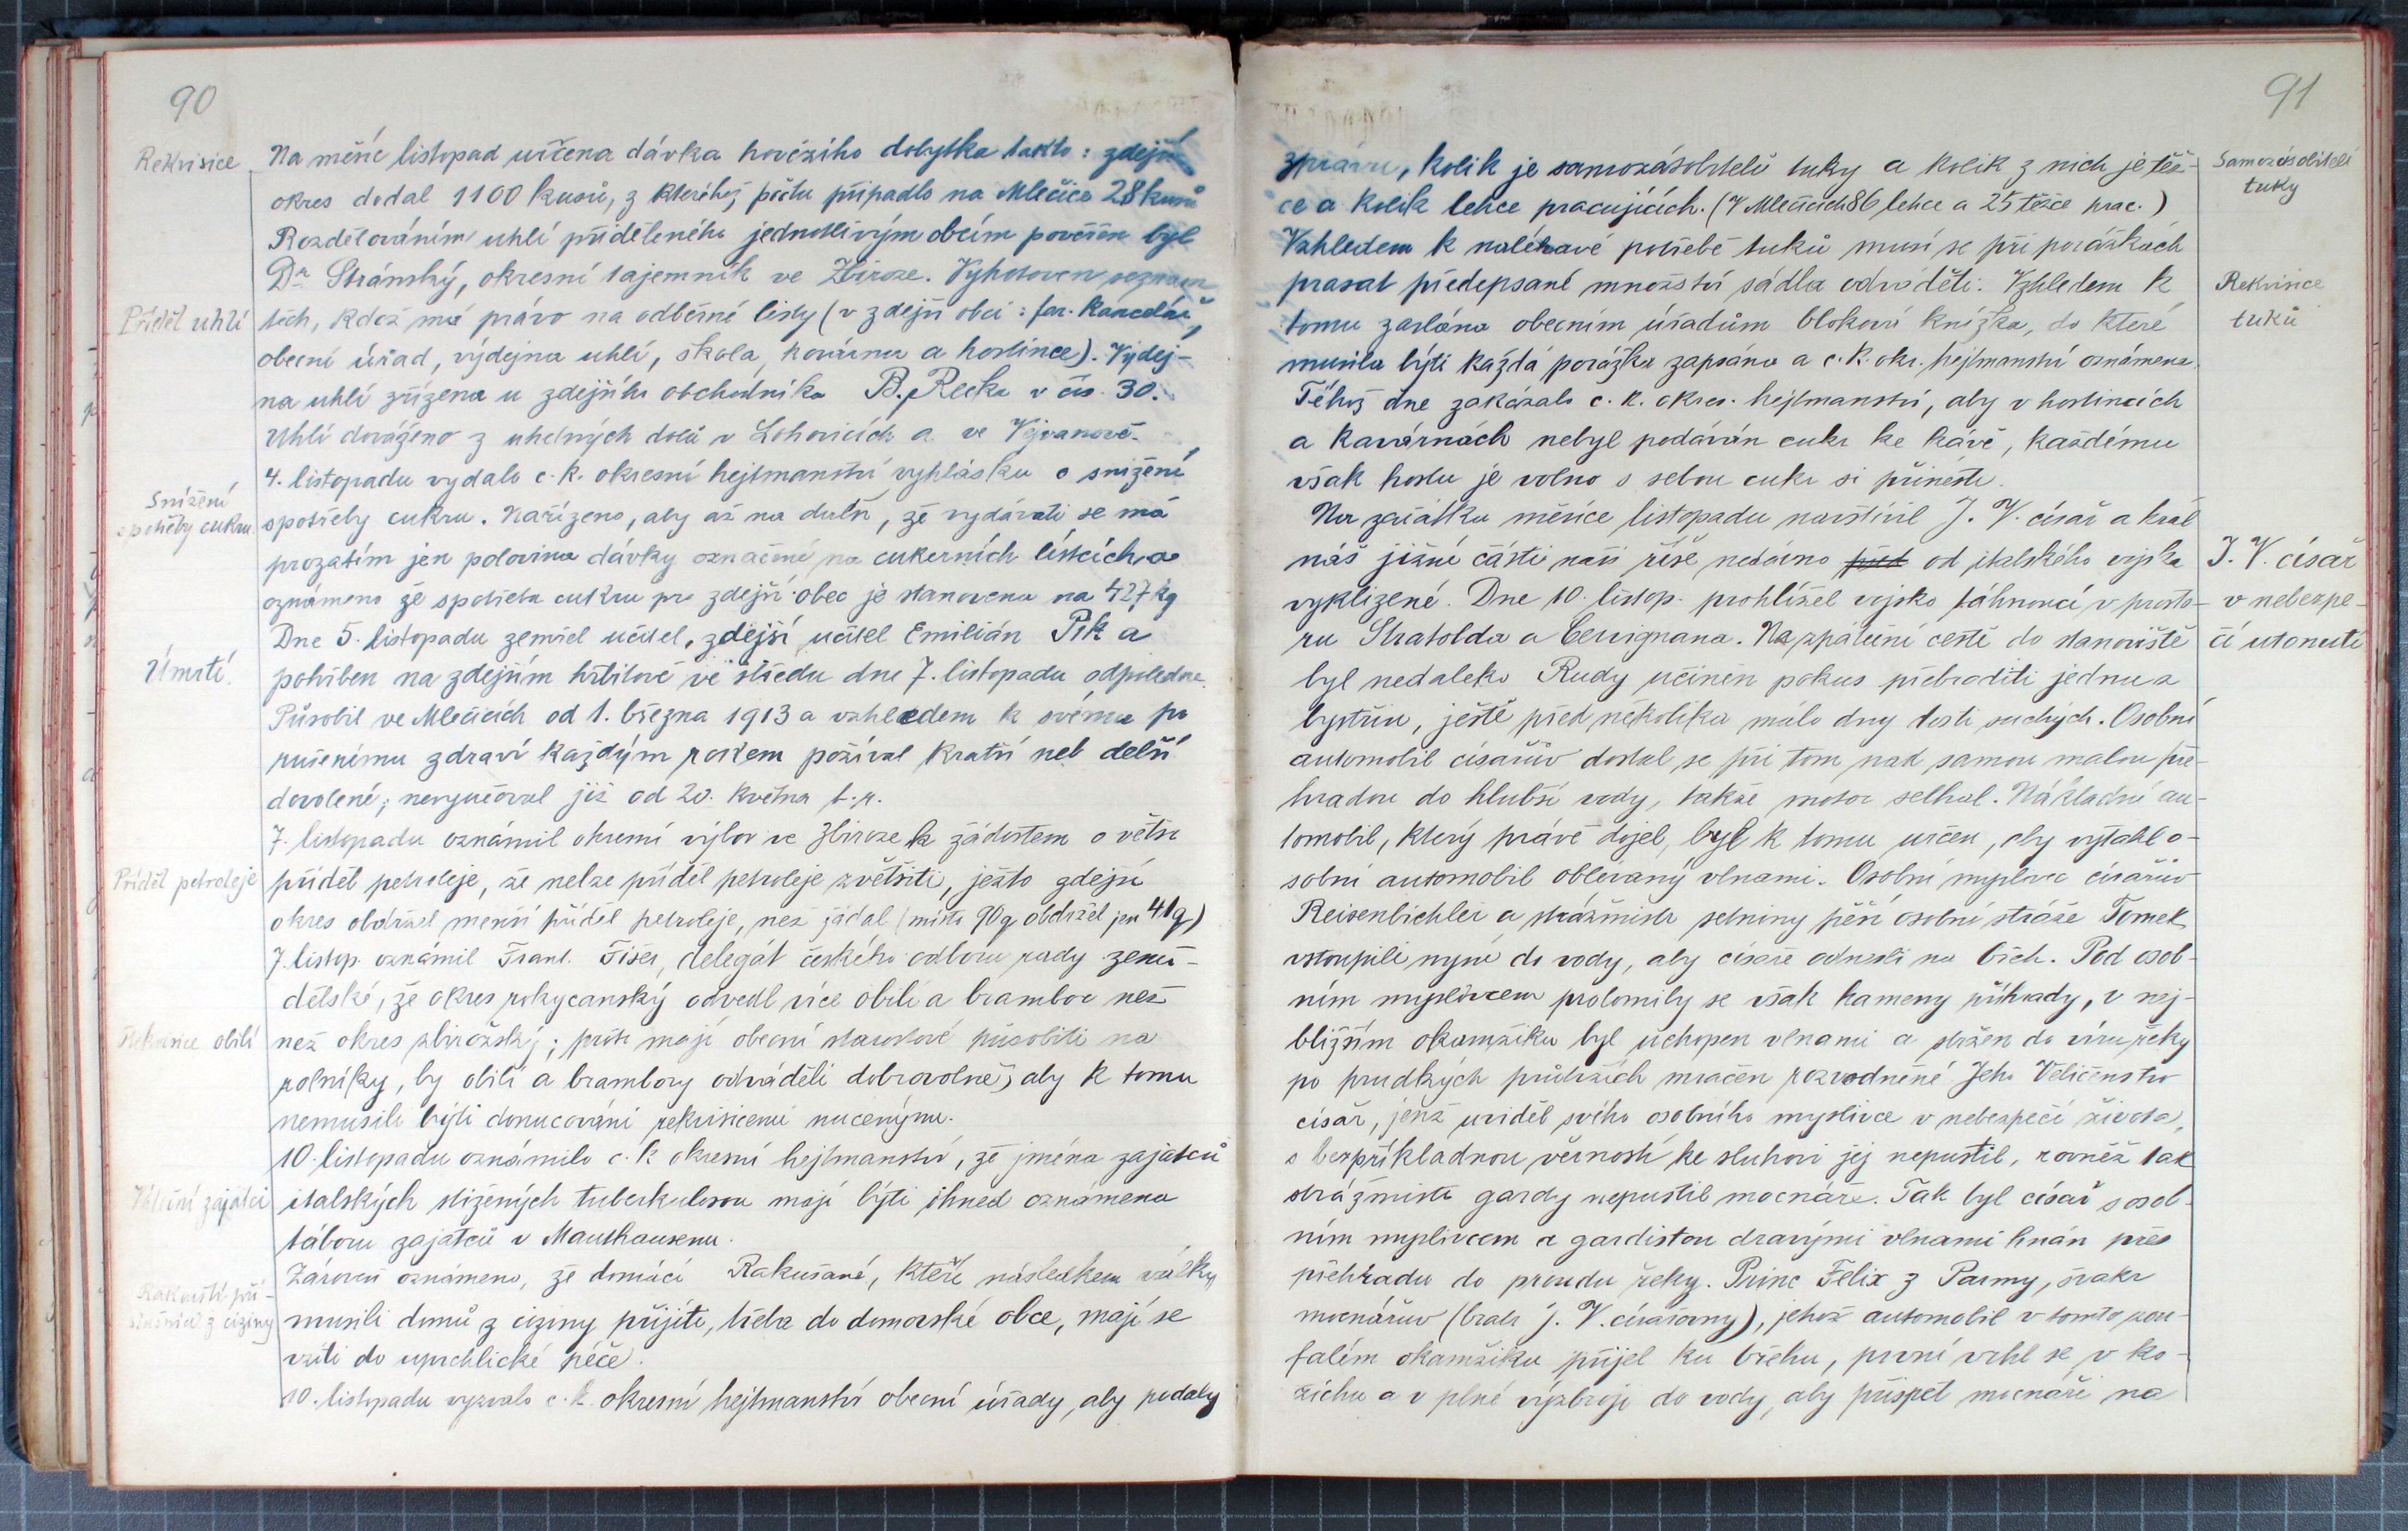 90
Rekvisice
Na měsíc listopad určena dávka hovězího dobytka takto: zdejší
okres dodal 1100 kusů, z kteréhož počtu připadlo na Mlečice 28 kusů
Rozdělováním uhlí přiděleného jednotlivým obcím pověřen byl
Dr Stránský, okresní tajemník ve Zbiroze. Vyhotoven seznam
Příděl uhlí
těch, kdož má právo na odběrné listy (v zdejší obci: far. kancelář,
obecní úřad, výdejna uhlí, škola, kovárna a hostince). Výdej-
na uhlí zřízena u zdejšího obchodníka B. Recka v čís. 30.
Uhlí dováženo z uhelných dolů v Lohovicích a ve Vejvanově.
4. listopadu vydalo c. k. okresní hejtmanství vyhlásku o snížení
Snížení
spotřeby cukru
spotřeby cukru. Nařízeno, aby až na další, že vydávati se má
prozatím jen polovina dávky označené na cukerních lístcích a
oznámeno že spotřeba cukru pro zdejší obec je stanovena na 427 kg
Dne 5. listopadu zemřel učitel, zdejší učitel Emilián Pík a
Úmrtí.
pohřben na zdejším hřbitově ve středu dne 7. listopadu odpoledne.
Působil ve Mlečicích od 1. března 1913 a vzhledem k svému po
rušenímu zdraví každým rokem požíval kratší neb delší
dovolené; nevyučoval již od 20. května t. r.
7. listopadu oznámil okresní výbor ve Zbiroze k žádostem o větší
Příděl petroleje
příděl petroleje, že nelze příděl petroleje zvětšiti, ježto zdejší
okres obdržel menší příděl petroleje, než žádal (místo 90 q obdržel jen 41 q)
7. listop. oznámil Frant. Fišer, delegát českého odboru rady země-
dělské, že okres rokycanský odvedl více obilí a brambor než
Rekvisice obilí
než okres zbirožský; proto mají obecní starostové působiti na
rolníky, by obilí a brambory odváděli dobrovolně, aby k tomu
nemusili býti donucováni rekvisicemi nucenými.
10. listopadu oznámilo c. k okresní hejtmanství, že jména zajatců
Váleční zajatci
italských stižených tuberkulosou mají býti ihned oznámena
táboru zajatců v Mauthausenu.
Zároveň oznámeno, že domácí Rakušané, kteří následkem války
Rakouští pří-
slušníci z ciziny
musili domů z ciziny přijíti, třeba do domovské obce, mají se
vzíti do uprchlické péče.
10. listopadu vyzvalo c. k. okresní hejtmanství obecní úřady, aby podaly
91
zprávu, kolik je samozásobitelů tuky a kolik z nich je těž-
Samozásobitelé
tuky
ce a kolik lehce pracujících. (V Mlečicích 86 lehce a 25 těžce prac.)
Vzhledem k naléhavé potřebě tuků musí se při porážkách
prasat předepsané množství sádla odváděti. Vzhledem k
Rekvisice
tuků
tomu zaslána obecním úřadům bloková knížka, do které
musila býti každá porážka zapsána a c. k. okr. hejtmanství oznámena.
Téhož dne zakázalo c. k. okres. hejtmanství, aby v hostincích
a kavárnách nebyl podáván cukr ke kávě, každému
však hostu je volno s sebou cukr si přinésti.
Na začátku měsíce listopadu navštívil J. V. císař a král
náš jižní části naší říše nedávno před od italského vojska
J. V. císař
vyklizené. Dne 10. listop. prohlížel vojsko táhnoucí v prosto-
v nebezpe-
ru Stratolda a Cervignana. Na zpáteční cestě do stanoviště
čí utonutí
byl nedaleko Rudy učiněn pokus přebroditi jednu z
bystřin, ještě před několika málo dny dosti suchých. Osobní
automobil císařův dostal se při tom nad samou malou pře-
hradou do hlubší vody, takže motor selhal. Nákladní au-
tomobil, který právě dojel, byl k tomu určen, aby vytáhl o-
sobní automobil oblévaný vlnami. Osobní myslivec císařův
Reisenbichler a strážmistr setniny pěší osobní stráže Tomek
vstoupili nyní do vody, aby císaře odnesli na břeh. Pod osob-
ním myslivcem prolomily se však kameny příhrady, v nej-
bližším okamžiku byl uchopen vlnami a stržen do víru řeky
po prudkých průtržích mračen rozvodněné Jeho Veličenstvo
císař, jenž uviděl svého osobního myslivce v nebezpečí života,
s bezpříkladnou věrností ke sluhovi jej nepustil, rovněž tak
strážmistr gardy nepustil mocnáře. Tak byl císař s osob-
ním myslivcem a gardistou dravými vlnami hnán přes
přehradu do proudu řeky. Princ Felix z Parmy, švakr
mocnářův (bratr J. V. císařovny), jehož automobil v tomto zou-
falém okamžiku přijel ku břehu, první vrhl se v ko-
žichu a v plné výzbroji do vody, aby přispěl mocnáři na